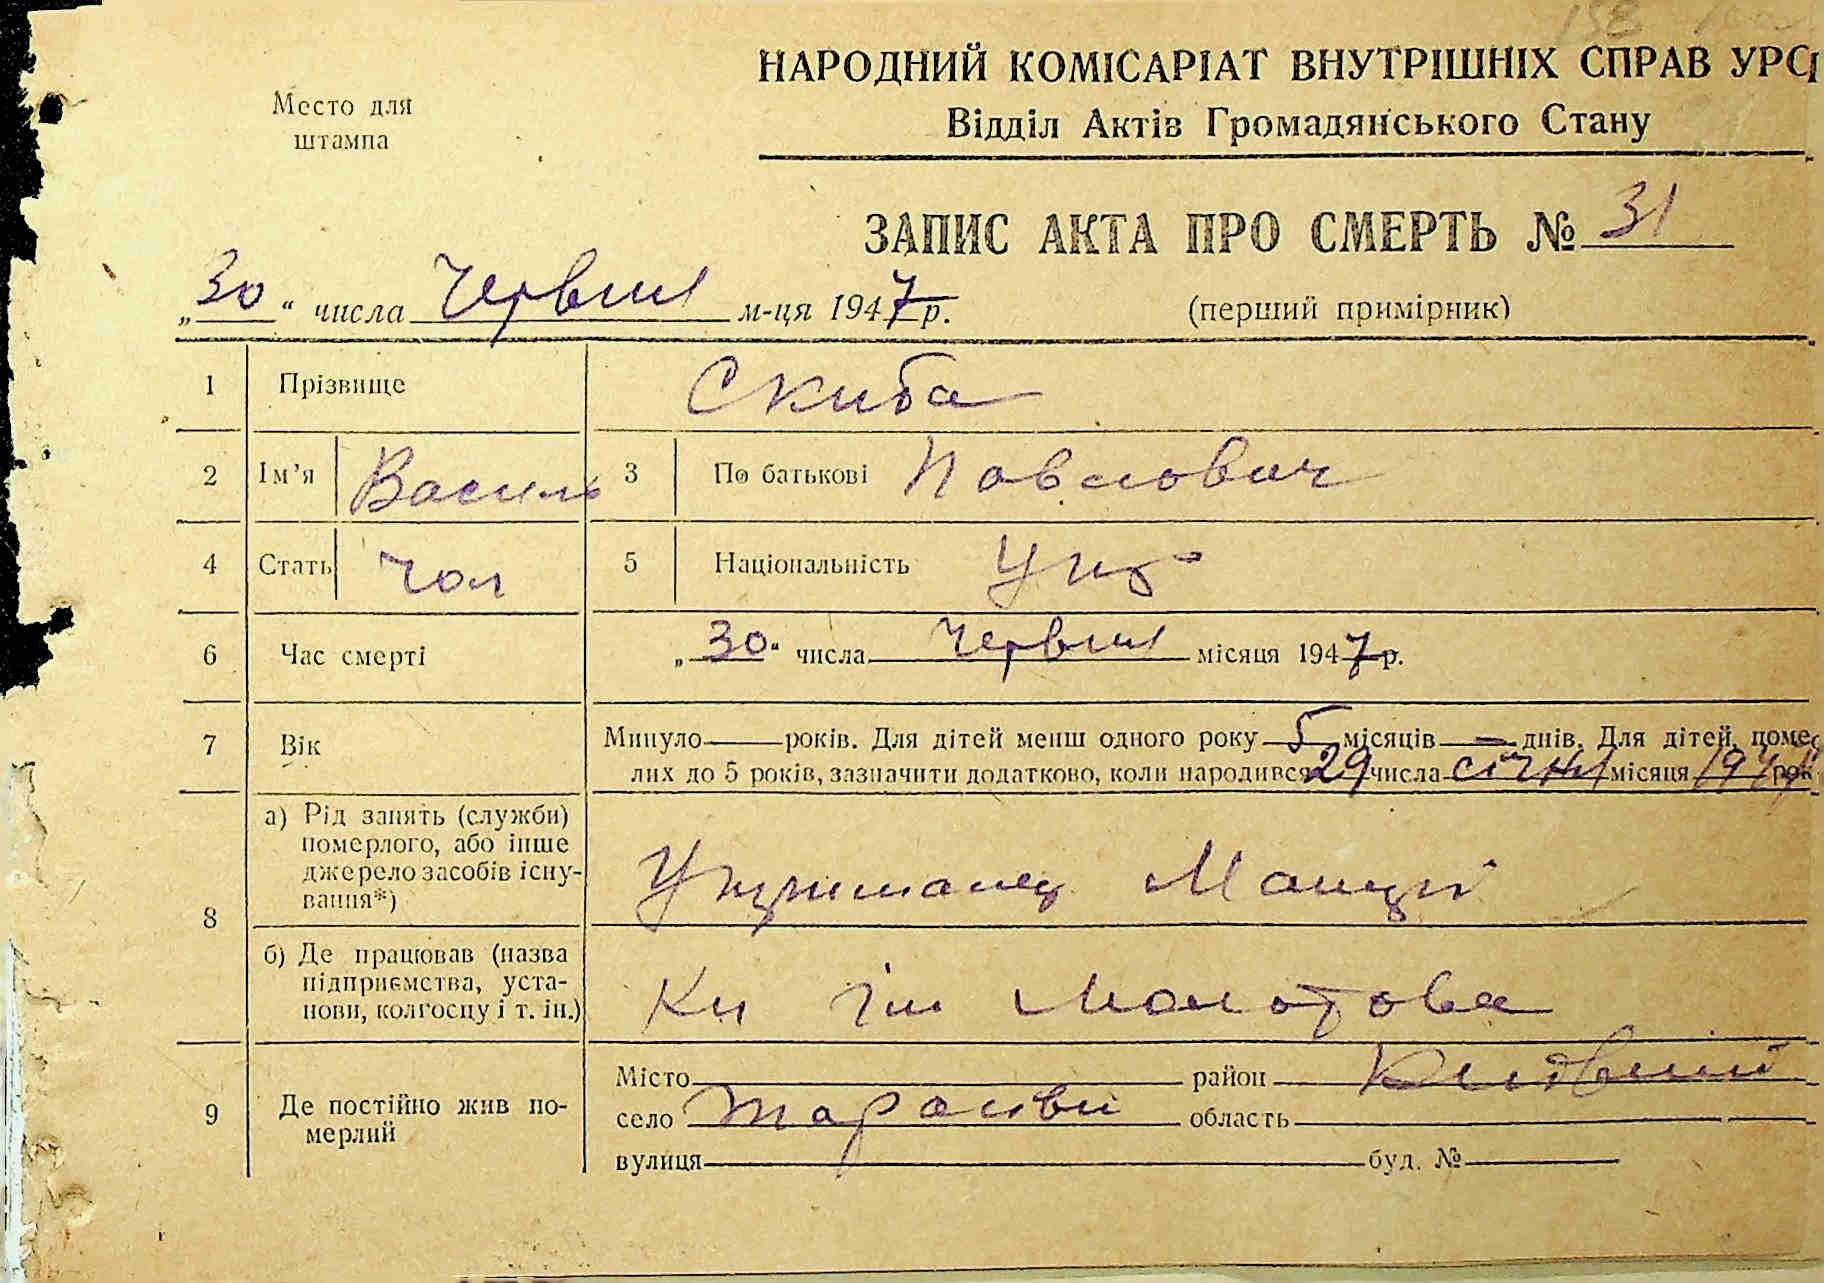 НАРОДНИЙ КОМІСАРІАТ ВНУТРІШНІХ СПРАВ УРС
Відділ Актів Громадянського Стану
Место для
штампа
ЗАПИС АКТА ПРО СМЕРТЬ № 31
„30“ числа Червня м-ця 1947 р.
(перший примірник)
1 Прізвище Скиба
2 Ім’я Василь 3 По батькові Павлович
4 Стать чол 5 Національність Укр
6 Час смерті „30“ числа Червня місяця 1947 р.
7 Вік Минуло — років. Для дітей менш одного року 5 місяців — днів. Для дітей, поме
лих до 5 років, зазначити додатково, коли народився 29 числа січня місяця 1947 рок
8 а) Рід занять (служби)
померлого, або інше
джерело засобів існу-
вання*)
Утриманец Матері
б) Де працював (назва
підприємства, уста-
нови, колгоспу і т. ін.)
Кп ім Молотова
9 Де постійно жив по-
мерлий
Місто район
село Тарасівки область
вулиця буд. №